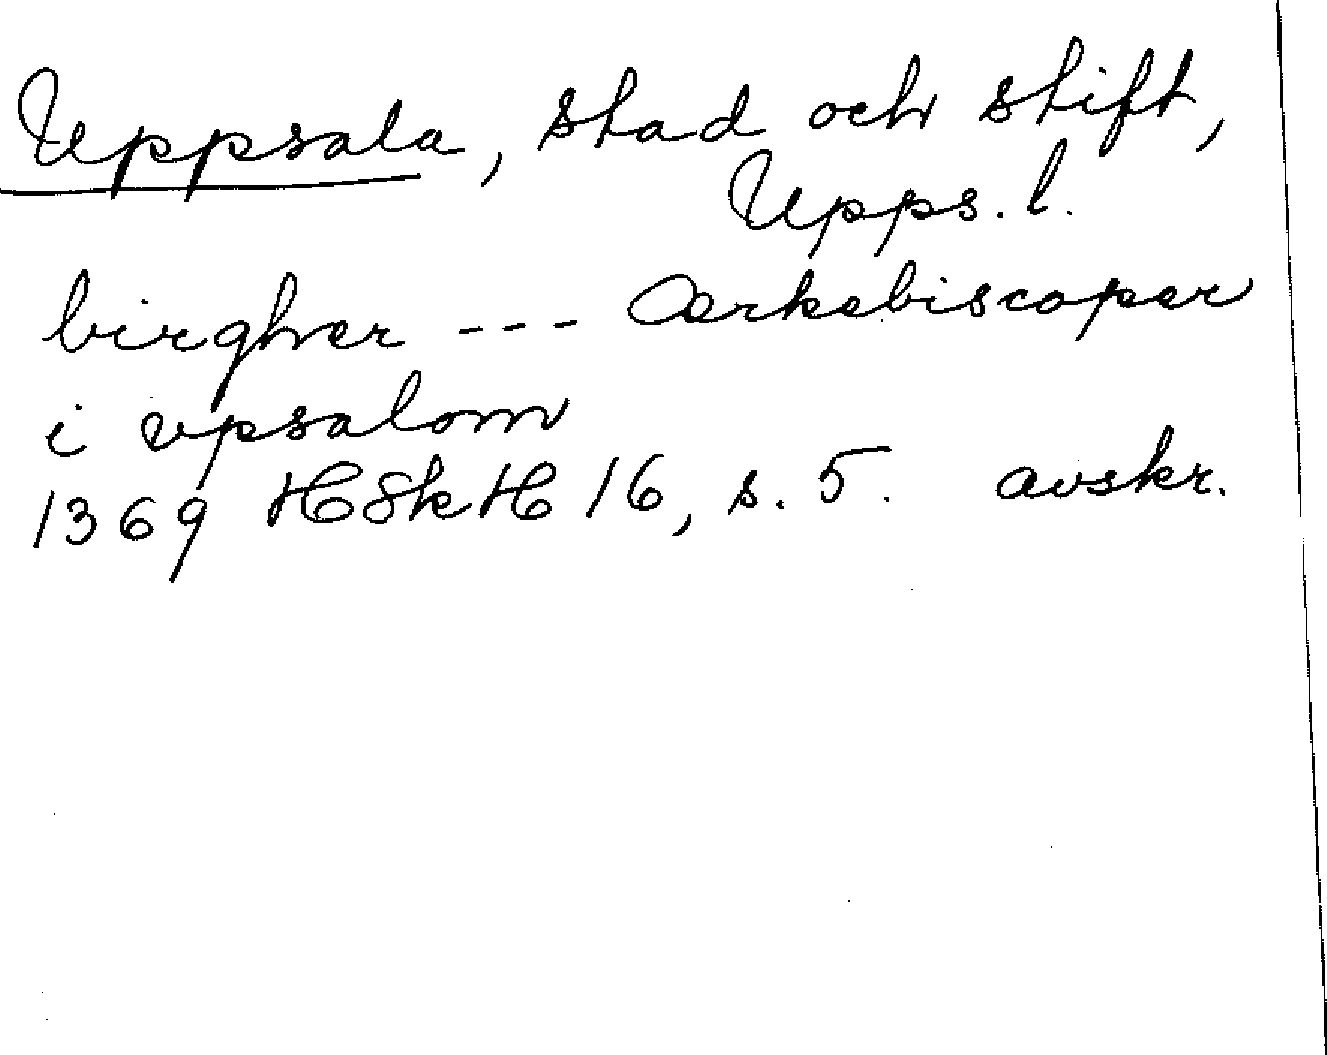 Uppsala, stad och stift,
Upps. l.
birgher --- Ærkebiscoper
i vpsalom
1369 HSkH 16, s. 5. avskr.